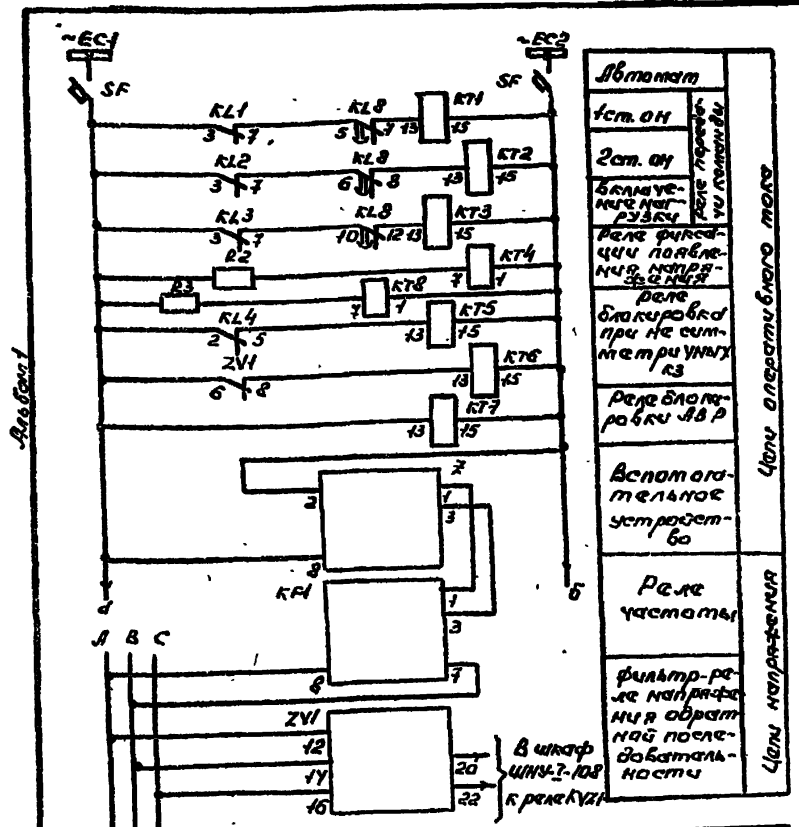 ~EC1
~EC2
SF
SF
KL1
3 7
KL8
5 7
KT1
13 15
KL2
3 7
KL8
6 8
KT2
13 15
KL3
3 7
KL8
10 12
KT3
13 15
R2
KT4
7 1
R3
KT8
7 1
KL4
2 5
KT5
13 15
ZV1
6 8
KT6
13 15
KT7
13 15
2
Z
1
3
8
а
б
KF1
1
3
8
7
А В С
ZV1
12
14
16
20
22
В шкаф
ШНУ-?-108
к реле KVZ1
Альбом 1
Автомат
1ст. он
2ст. он
Включе-
ние наг-
рузки
реле переда-
чи команды
Реле фикса-
ции появле-
ния напря-
жения
реле
блокировка
при несим-
метричных
кз
Реле блоки-
ровки АВР
Вспомога-
тельное
устройст-
во
Реле
частоты
Фильтр-ре-
ле напряже-
ния обрат-
ной после-
довательнос-
ности
Цепи оперативного тока
Цепи напряжения